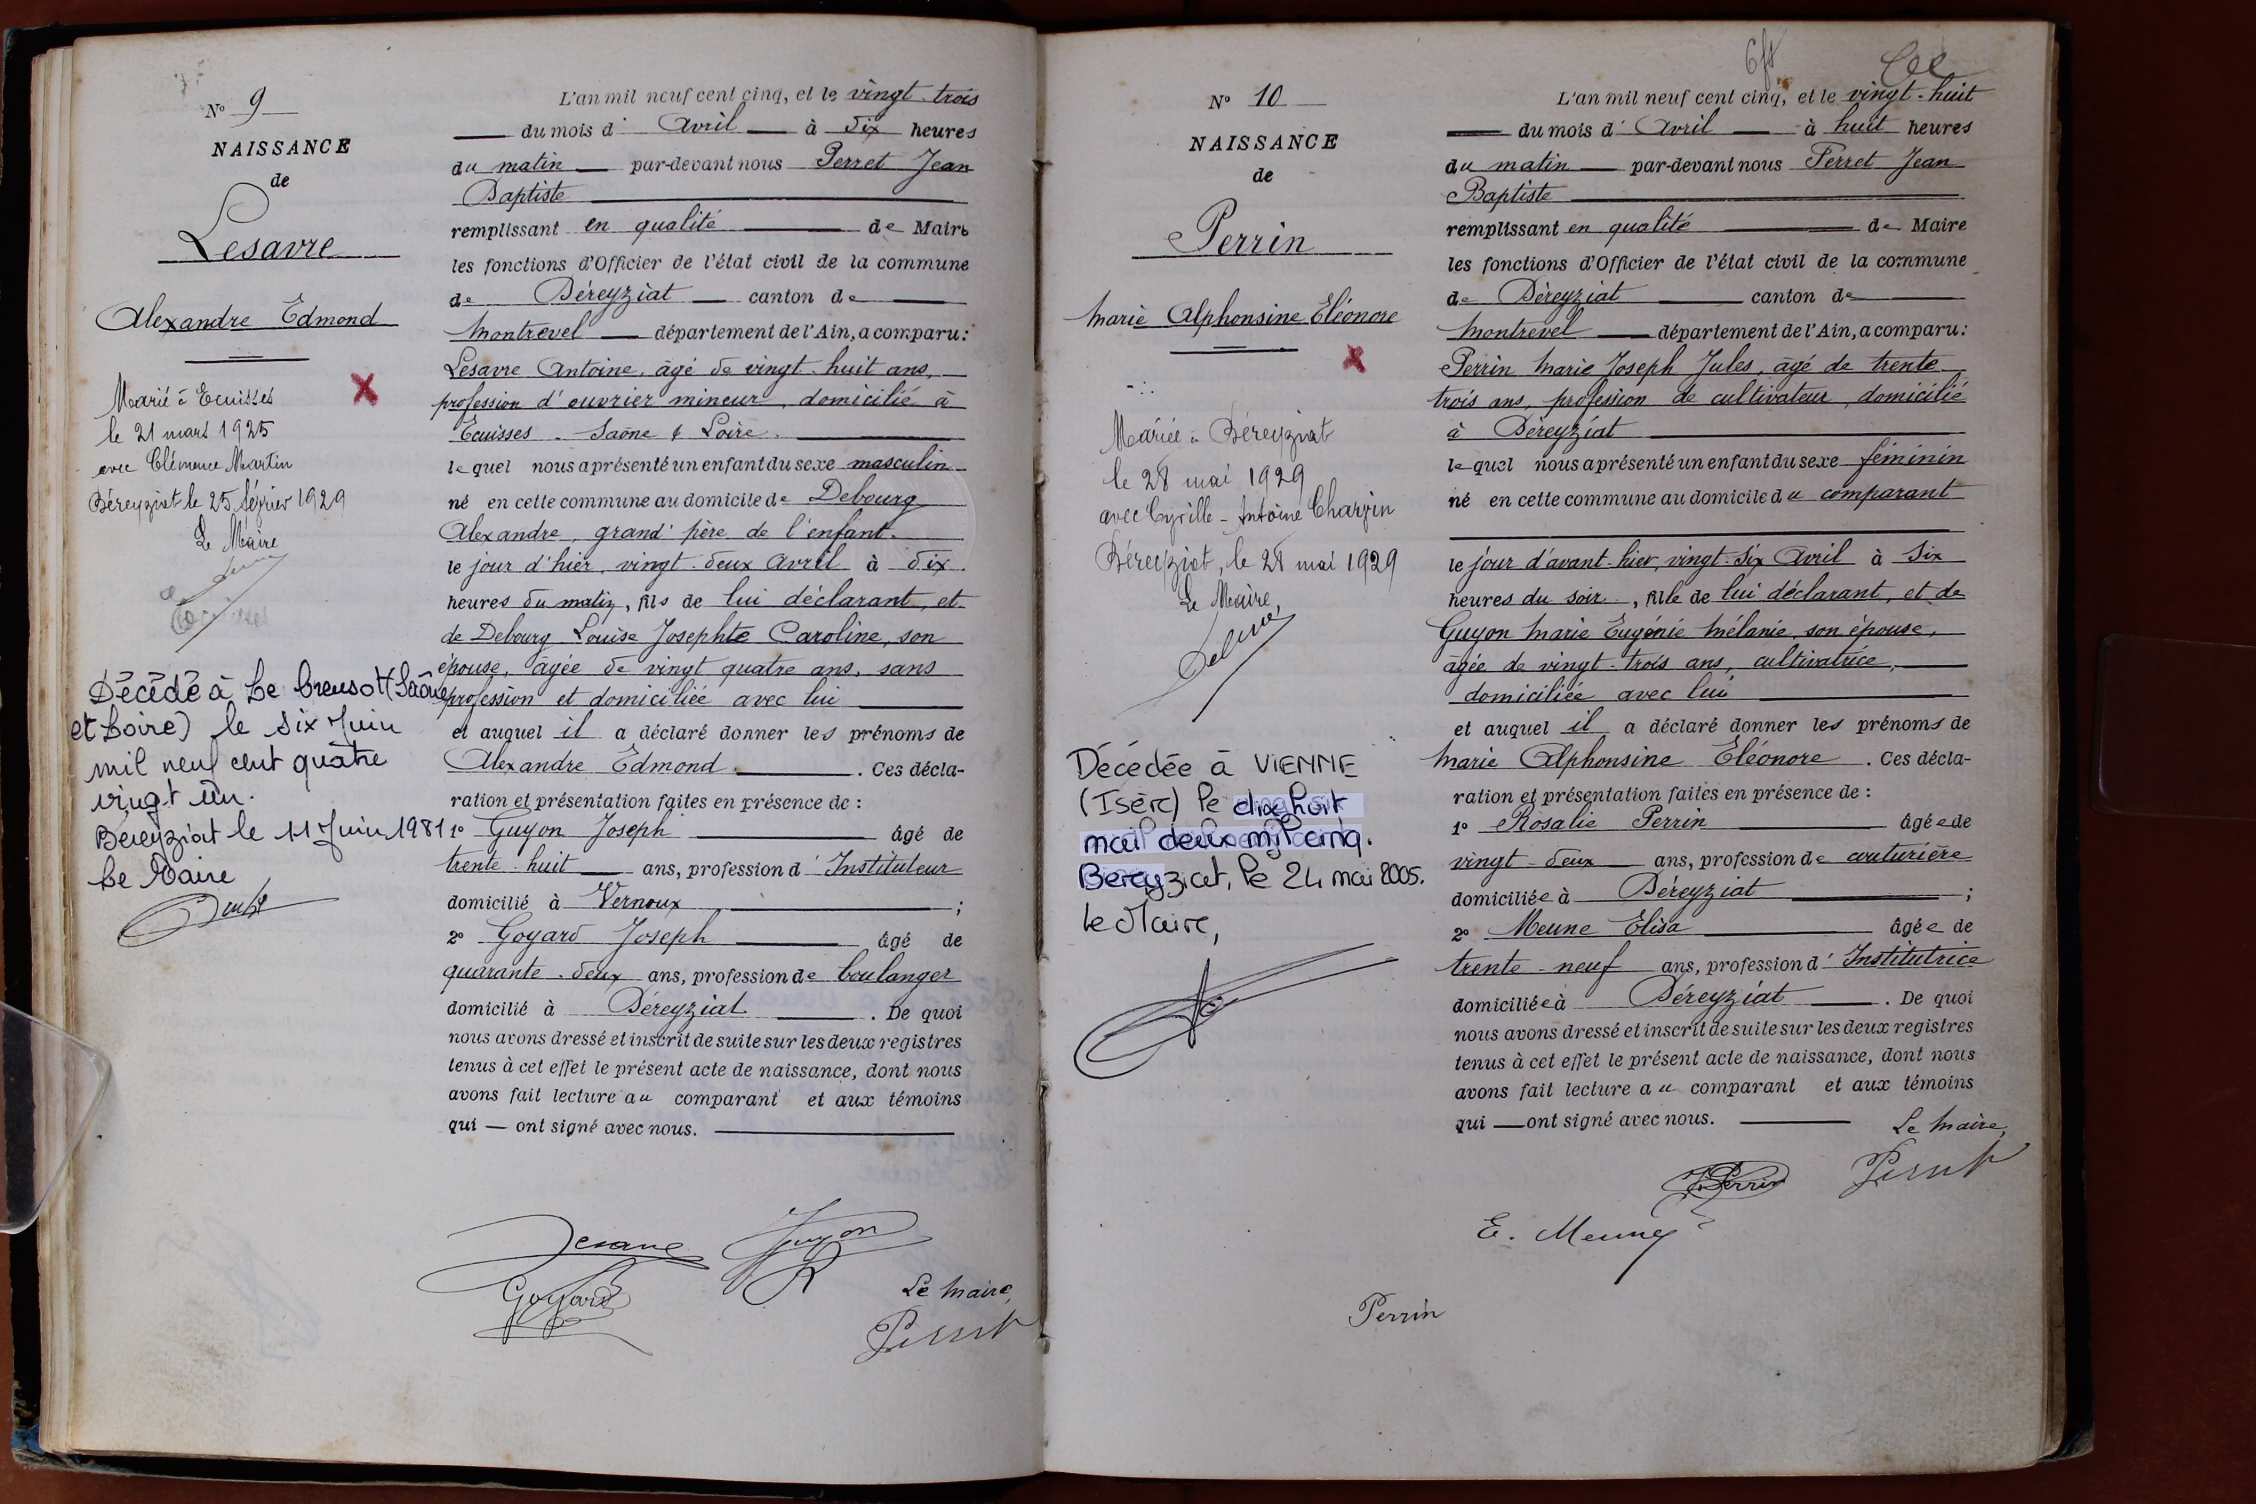 N° 9
NAISSANCE
de
Lesavre
Alexandre Edmond
Marié à Ecuisses
le 21 mars 1925
avec Clémence Martin
Béreyziat le 25 février 1929
Le Maire
Décédé à Le Creusot (Saône
et Loire) le six Juin
mil neuf cent quatre
vingt un.
Béreyziat le 11 Juin 1981
Le Maire
L'an mil neuf cent cinq, et le vingt-trois
du mois d' Avril à dix heures
du matin par-devant nous Perret Jean
Baptiste
remplissant en qualité de Maire
les fonctions d'Officier de l'état civil de la commune
de Béreyziat canton de
Montrevel département de l'Ain, a comparu :
Lesavre Antoine, âgé de vingt-huit ans,
profession d'ouvrier mineur, domicilié à
Ecuisses - Saône & Loire.
lequel nous a présenté un enfant du sexe masculin
né en cette commune au domicile de Debourg
Alexandre, grand' père de l'enfant.
le jour d'hier, vingt-deux Avril à dix
heures du matin, fils de lui déclarant, et
de Debourg Louise Josephte Caroline, son
épouse, âgée de vingt quatre ans, sans
profession et domiciliée avec lui
et auquel il a déclaré donner les prénoms de
Alexandre Edmond. Ces décla-
ration et présentation faites en présence de :
1° Guyon Joseph âgé de
trente-huit ans, profession d'Instituteur
domicilié à Vernoux ;
2° Goyard Joseph âgé de
quarante-deux ans, profession de boulanger
domicilié à Béreyziat. De quoi
nous avons dressé et inscrit de suite sur les deux registres
tenus à cet effet le présent acte de naissance, dont nous
avons fait lecture au comparant et aux témoins
qui — ont signé avec nous.
Lesavre Guyon
Goyard
Le Maire,
Perret
N° 10
NAISSANCE
de
Perrin
Marie Alphonsine Eléonore
Mariée à Béreyziat
le 28 mai 1929
avec Cyrille-Antoine Charvin
Béreyziat, le 28 mai 1929
Le Maire,
Décédée à VIENNE
(Isère) le dix huit
mai deux mil cinq.
Bereyziat, le 24 mai 2005.
Le Maire,
L'an mil neuf cent cinq, et le vingt-huit
du mois d' Avril à huit heures
du matin par-devant nous Perret Jean
Baptiste
remplissant en qualité de Maire
les fonctions d'Officier de l'état civil de la commune
de Béreyziat canton de
Montrevel département de l'Ain, a comparu :
Perrin Marie Joseph Jules, âgé de trente-
trois ans, profession de cultivateur, domicilié
à Béreyziat
lequel nous a présenté un enfant du sexe féminin
né en cette commune au domicile du comparant
le jour d'avant-hier, vingt-six Avril à six
heures du soir, fille de lui déclarant, et de
Guyon Marie Eugénie Mélanie, son épouse,
âgée de vingt-trois ans, cultivatrice,
domiciliée avec lui
et auquel il a déclaré donner les prénoms de
Marie Alphonsine Eléonore. Ces décla-
ration et présentation faites en présence de :
1° Rosalie Perrin âgée de
vingt-deux ans, profession de couturière
domiciliée à Béreyziat ;
2° Meune Elisa âgée de
trente-neuf ans, profession d'Institutrice
domiciliée à Béreyziat. De quoi
nous avons dressé et inscrit de suite sur les deux registres
tenus à cet effet le présent acte de naissance, dont nous
avons fait lecture au comparant et aux témoins
qui — ont signé avec nous.
Le Maire,
Perrin Perret
E. Meune
Perrin